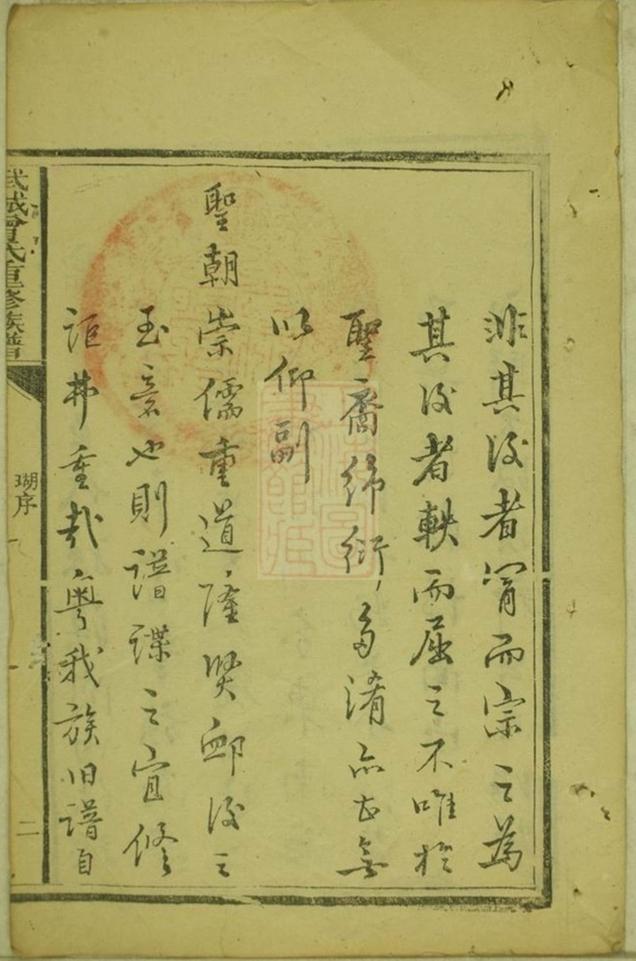 非其後者冒而宗之為
其後者軼而屈之不唯於
聖裔綿衍多淆亦且無
以仰副
聖朝崇儒重道隆賢卹後之
至意也則譜諜之宜修
詎弗重哉粵我族旧譜自
武城曾氏重修族譜
瑚序
二